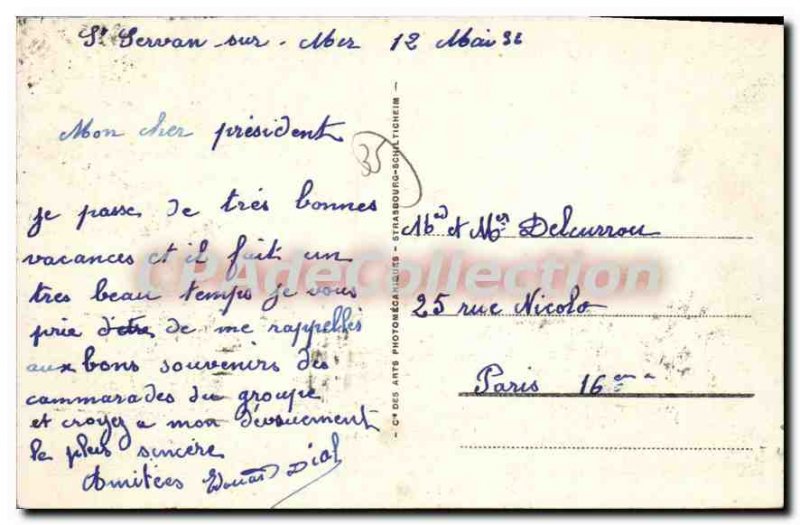 St Servan sur. Mer 12 Mai 36
Mon cher président
je passe de très bonnes
vacances et il fait un
tres beau temps je vous
prie de me rappelles
aux bons souvenirs des
cammarades du groupe
et croyez a mon dévouement
le plus sincère
Amitées Edouard
35
Cie DES ARTS PHOTOMÉCANIQUES - STRASBOURG-SCHILTIGHEIM
CPAdeCollection
et
25 rue Nicolo
Paris 16